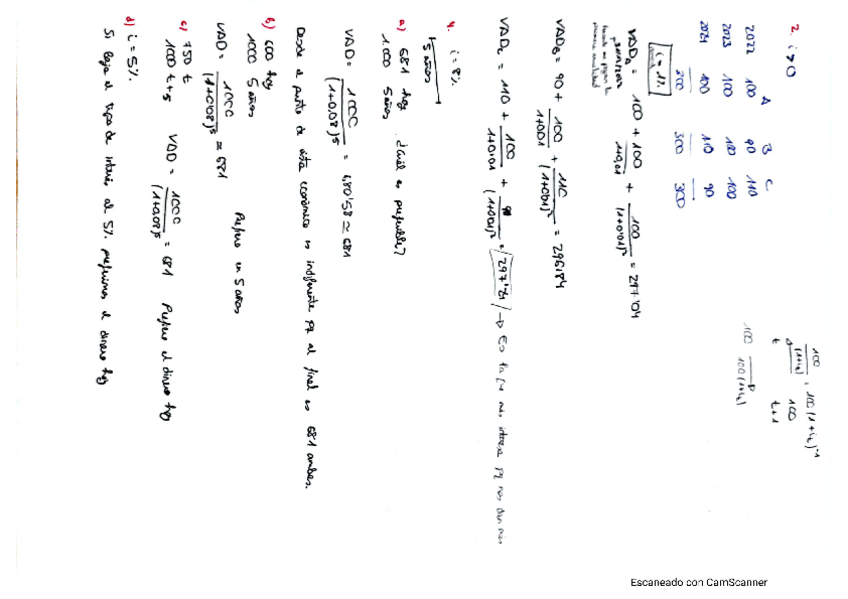 2. i > 0
A B C
2022 100 90 110
2023 100 100 100
2024 100 110 90
300 300 300
i = 1%
VAD_A = 100 + 100/(1+0,01) + 100/(1+0'01)² = 297'04
VAD_B = 90 + 100/(1+0,01) + 110/(1+0,01)² = 296,84
VAD_C = 110 + 100/(1+0,01) + 90/(1+0,01)² = 297'21 → Es la que más interesa pq nos dan más
100/(1+i_t) = 100(1+i_t)⁻¹ 100
t t+1
100 → 100(1+i_t)
4. i = 8%
5 años
a) 681 hoy ¿Cuál es preferible?
1.000 5 años
VAD = 1000/(1+0,08)⁵ = 680'58 ≈ 681
Desde el punto de vista económico es indiferente pq al final es 681 ambas.
b) 600 hoy
1000 5 años
VAD = 1000/(1+0'08)⁵ ≈ 681 Prefiero en 5 años
c) 750 t
1000 t+5 VAD = 1000/(1+0,08)⁵ = 681 Prefiero el dinero hoy
d) i = 5%.
Si baja el tipo de interés al 5% preferimos el dinero hoy
Escaneado con CamScanner